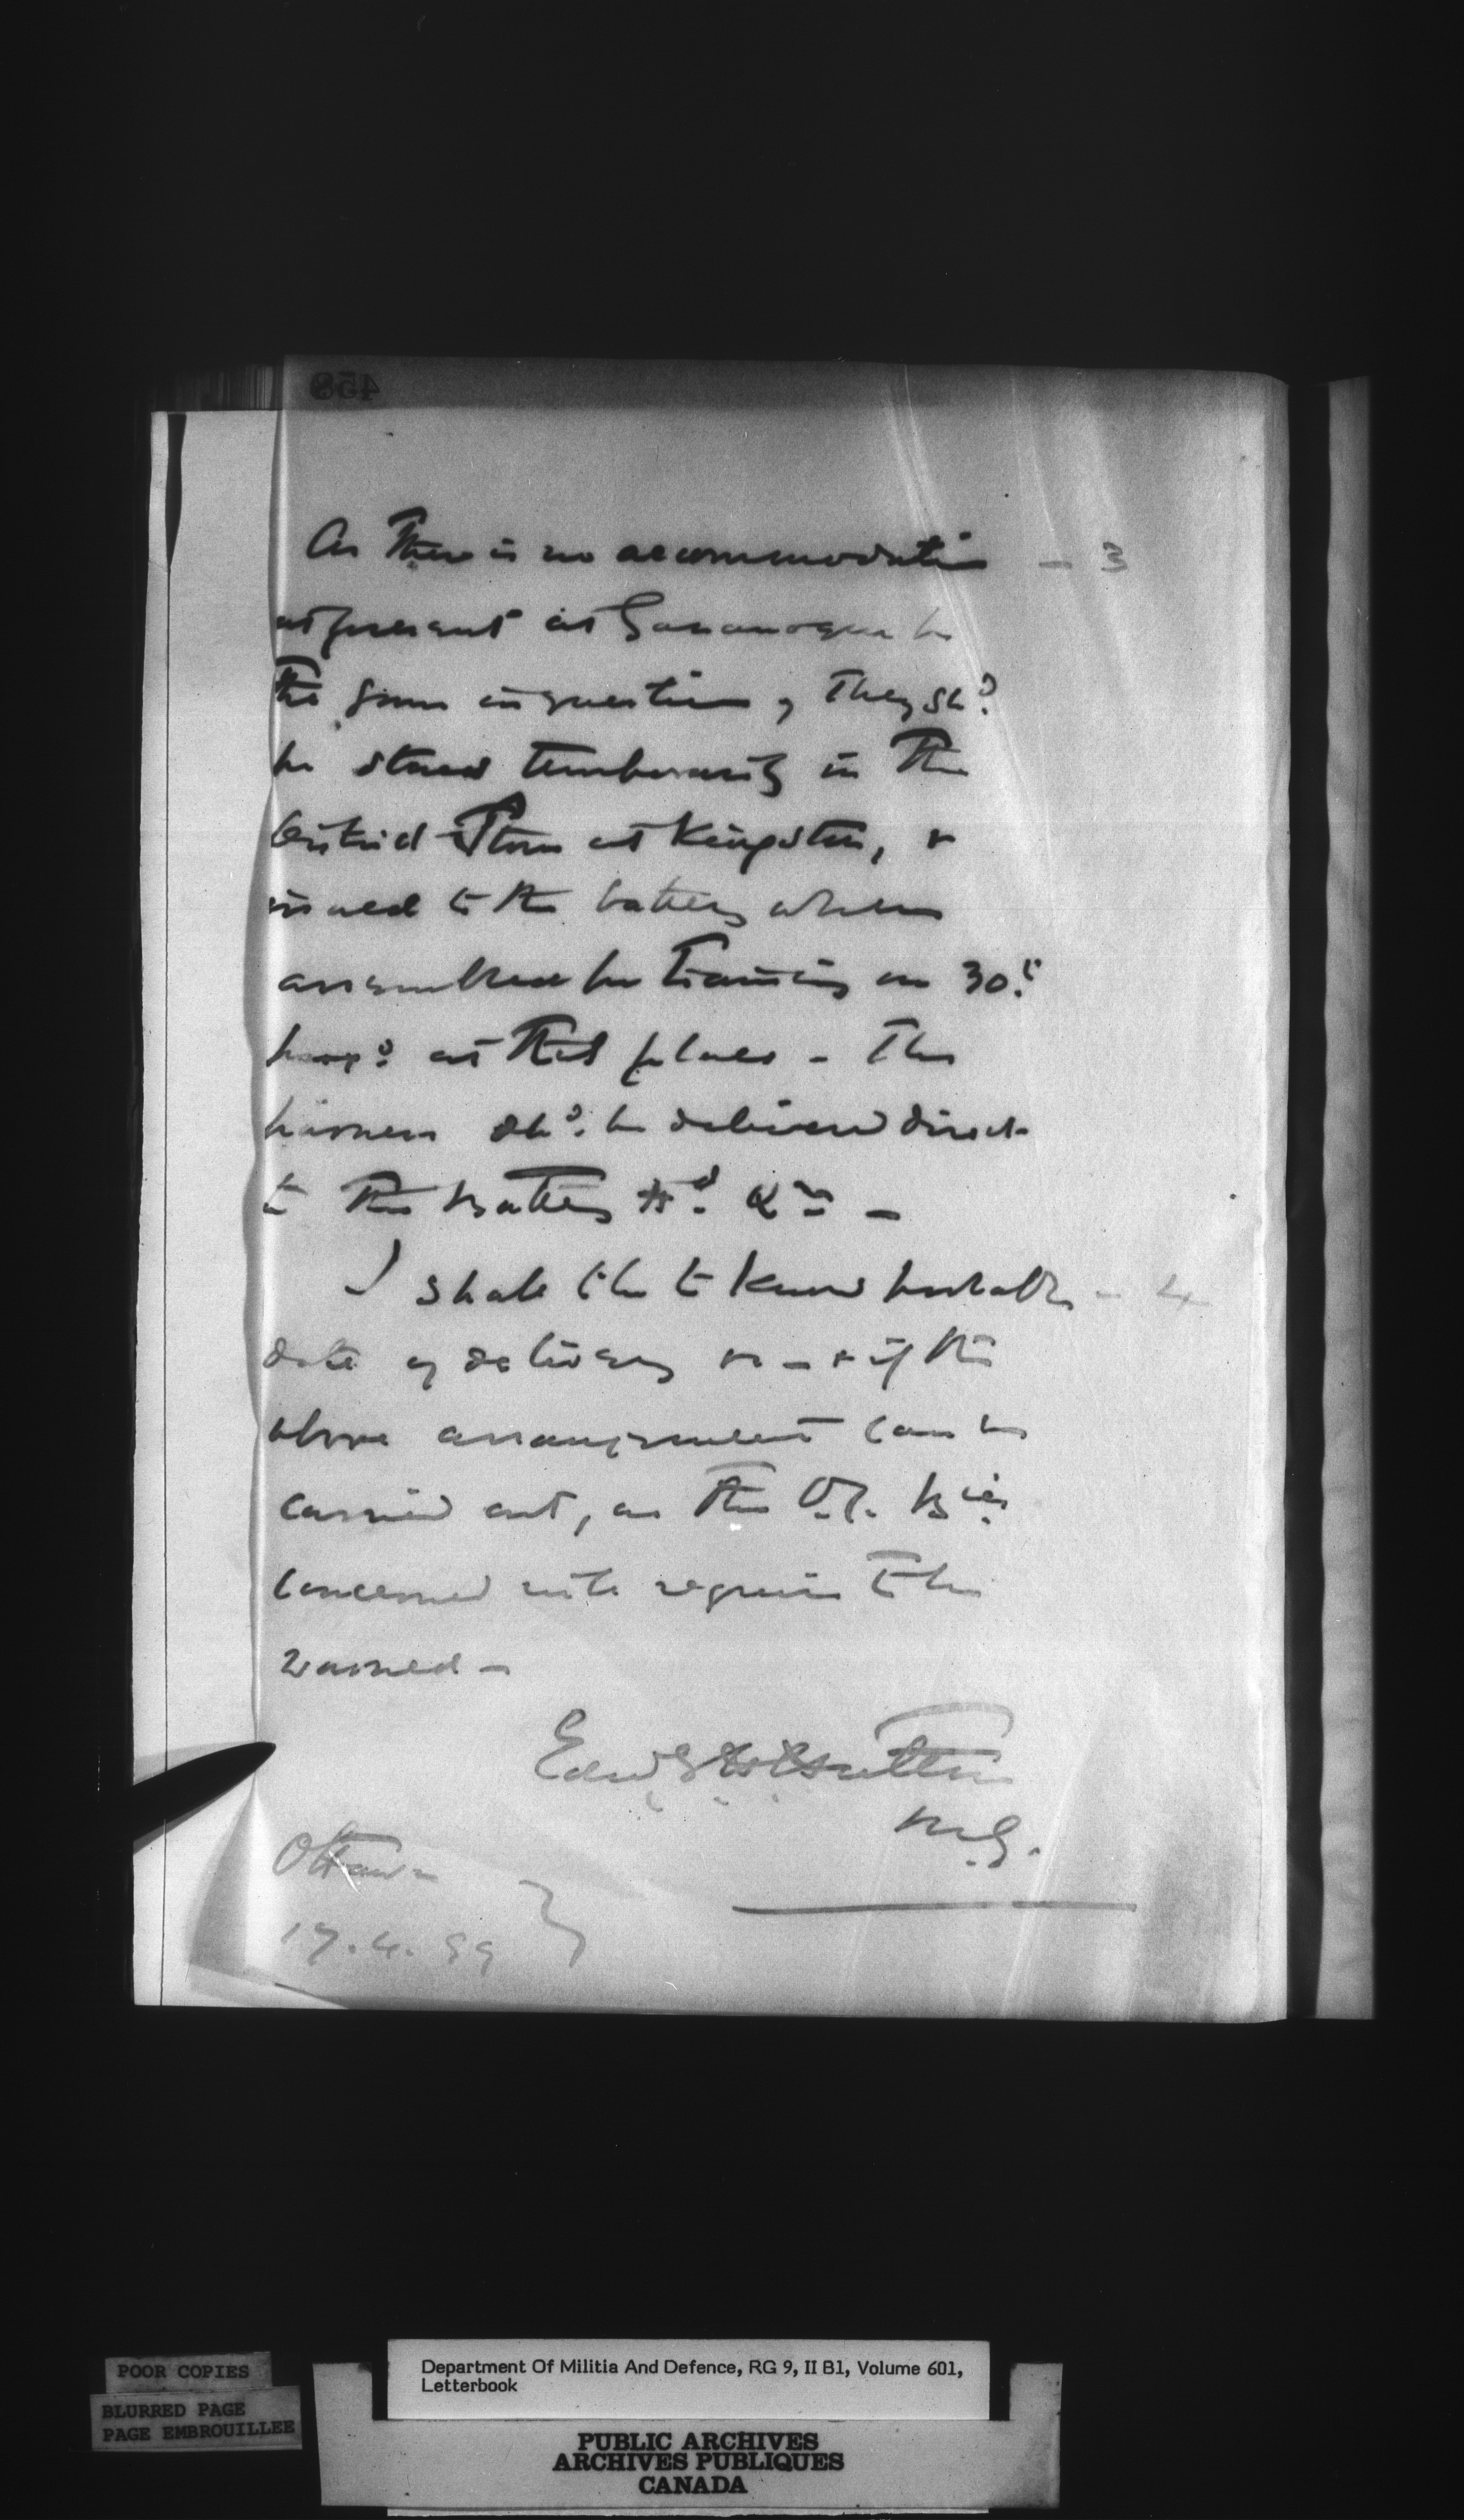 458
As there is no accommodation - 3
at present at Gananoque for
the guns in question, they shd.
be stored temporarily in the
District Store at Kingston, &
issued to the battery when
assembled for training on 30th
at that place - The
harness shd. be delivered direct
to the Battery Hd. Qrs -
I shall like to know probable - 4
date of delivery & if the
above arrangement can be
carried out, as the O.C. Bties
concerned will require to be
warned -
Hutton
M.G.
Ottawa
17.4.99
POOR COPIES
BLURRED PAGE
PAGE EMBROUILLEE
Department Of Militia And Defence, RG 9, II B1, Volume 601,
Letterbook
PUBLIC ARCHIVES
ARCHIVES PUBLIQUES
CANADA